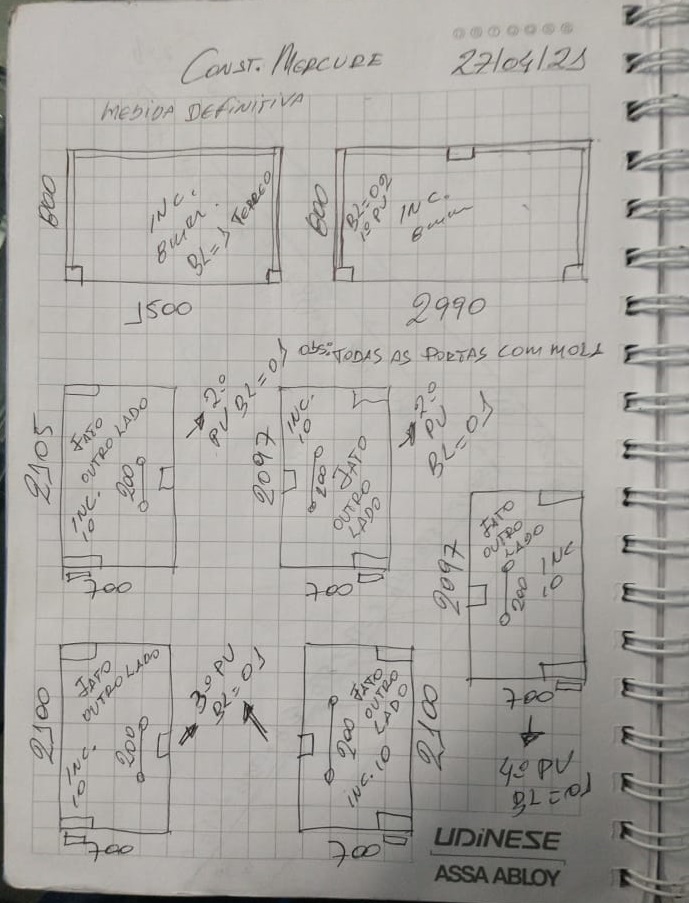 CONST. MERCURE 27/04/21
MEDIDA DEFINITIVA
800
INC.
8mm.
BL=> TERREO
1500
800
BL=02
1º PV
INC.
8mm
2990
obs: TODAS AS PORTAS COM MOLA
2105
JATO
OUTRO LADO
INC.
10
200
700
2º
PV BL=01
2097
INC.
10
200
JATO
OUTRO
LADO
700
2º
PV
BL=01
2097
JATO
OUTRO
LADO
200
INC
10
700
4º PV
BL=01
2100
JATO
OUTRO LADO
INC.
10
200
700
3º PV
BL=01
200
JATO
OUTRO
LADO
INC. 10
2100
700
UDINESE
ASSA ABLOY